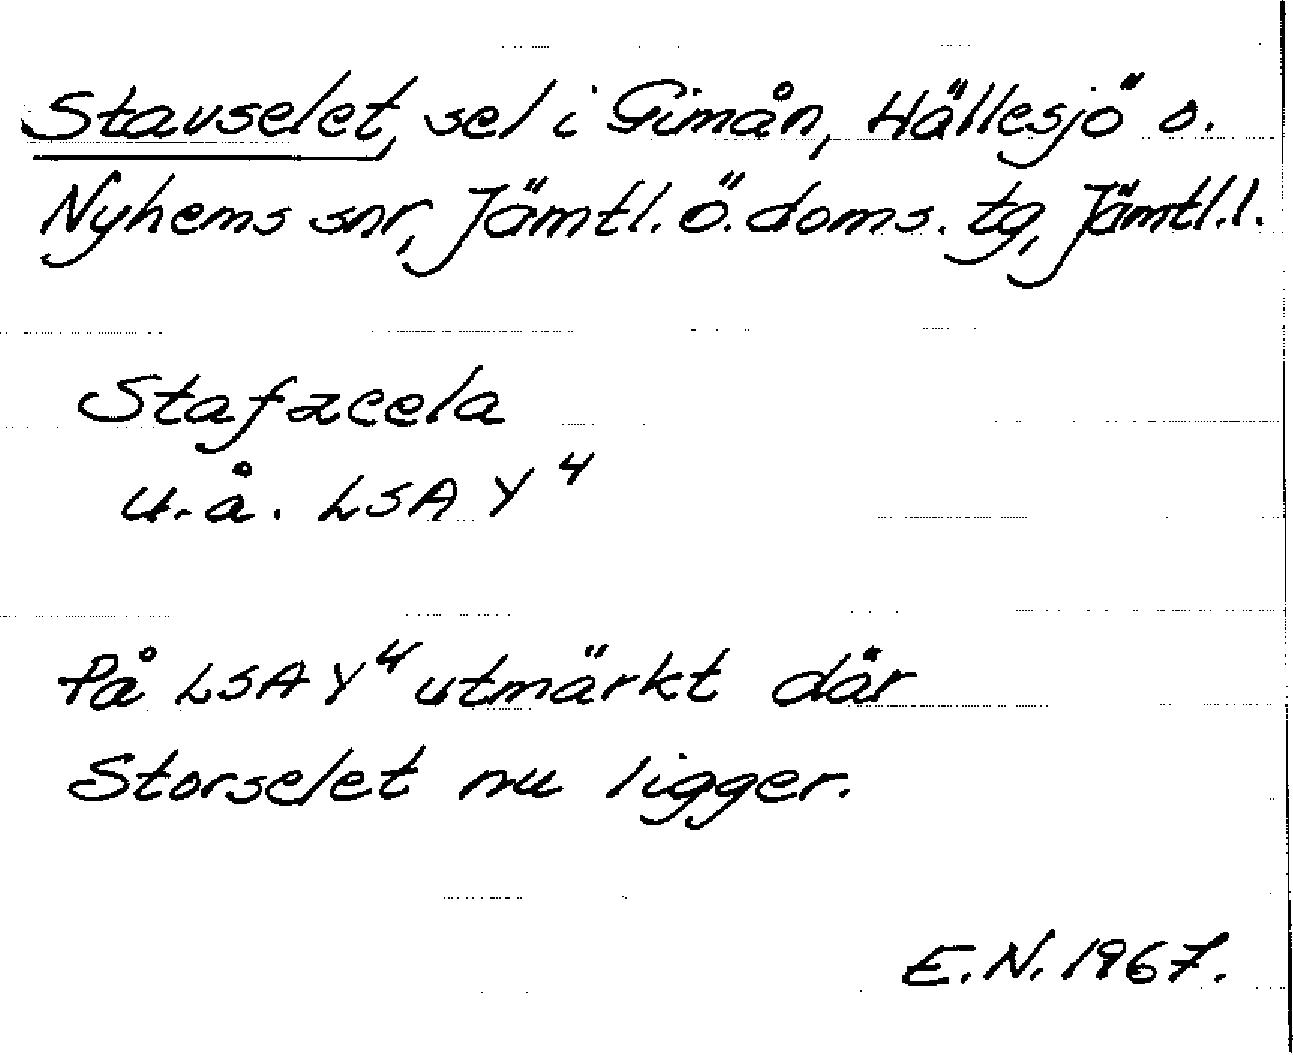 Stavselet, sel i Gimån, Hällesjö o.
Nyhems snr, Jämtl. Ö. doms. tg, Jämtl. l.
Stafzcela
u. å. LSA Y⁴
På LSA Y⁴ utmärkt där
Storselet nu ligger.
E. N. 1967.